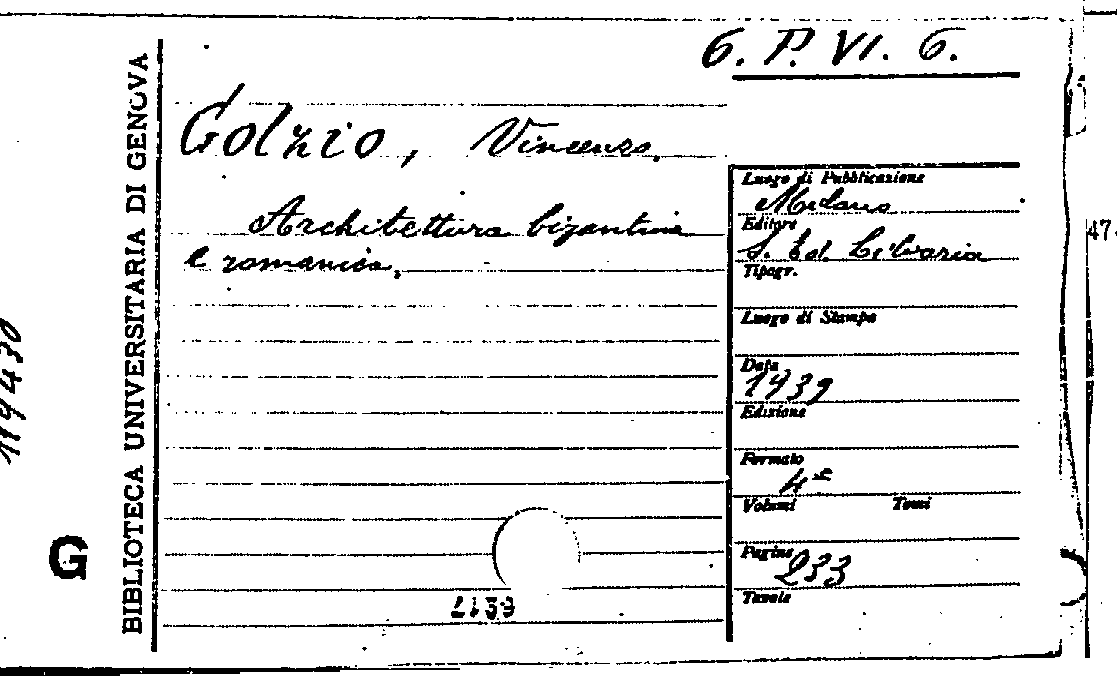 6. P. VI. 6.
Golzio, Vincenzo.
Architettura bizantina
e romanica.
Luogo di Pubblicazione
Milano
Editore
S. Ed. Libraria
Tipogr.
Luogo di Stampa
Data
1939
Edizione
Formato
4º
Volumi Tomi
Pagine
233
Tavole
2139
BIBLIOTECA UNIVERSITARIA DI GENOVA
G
47